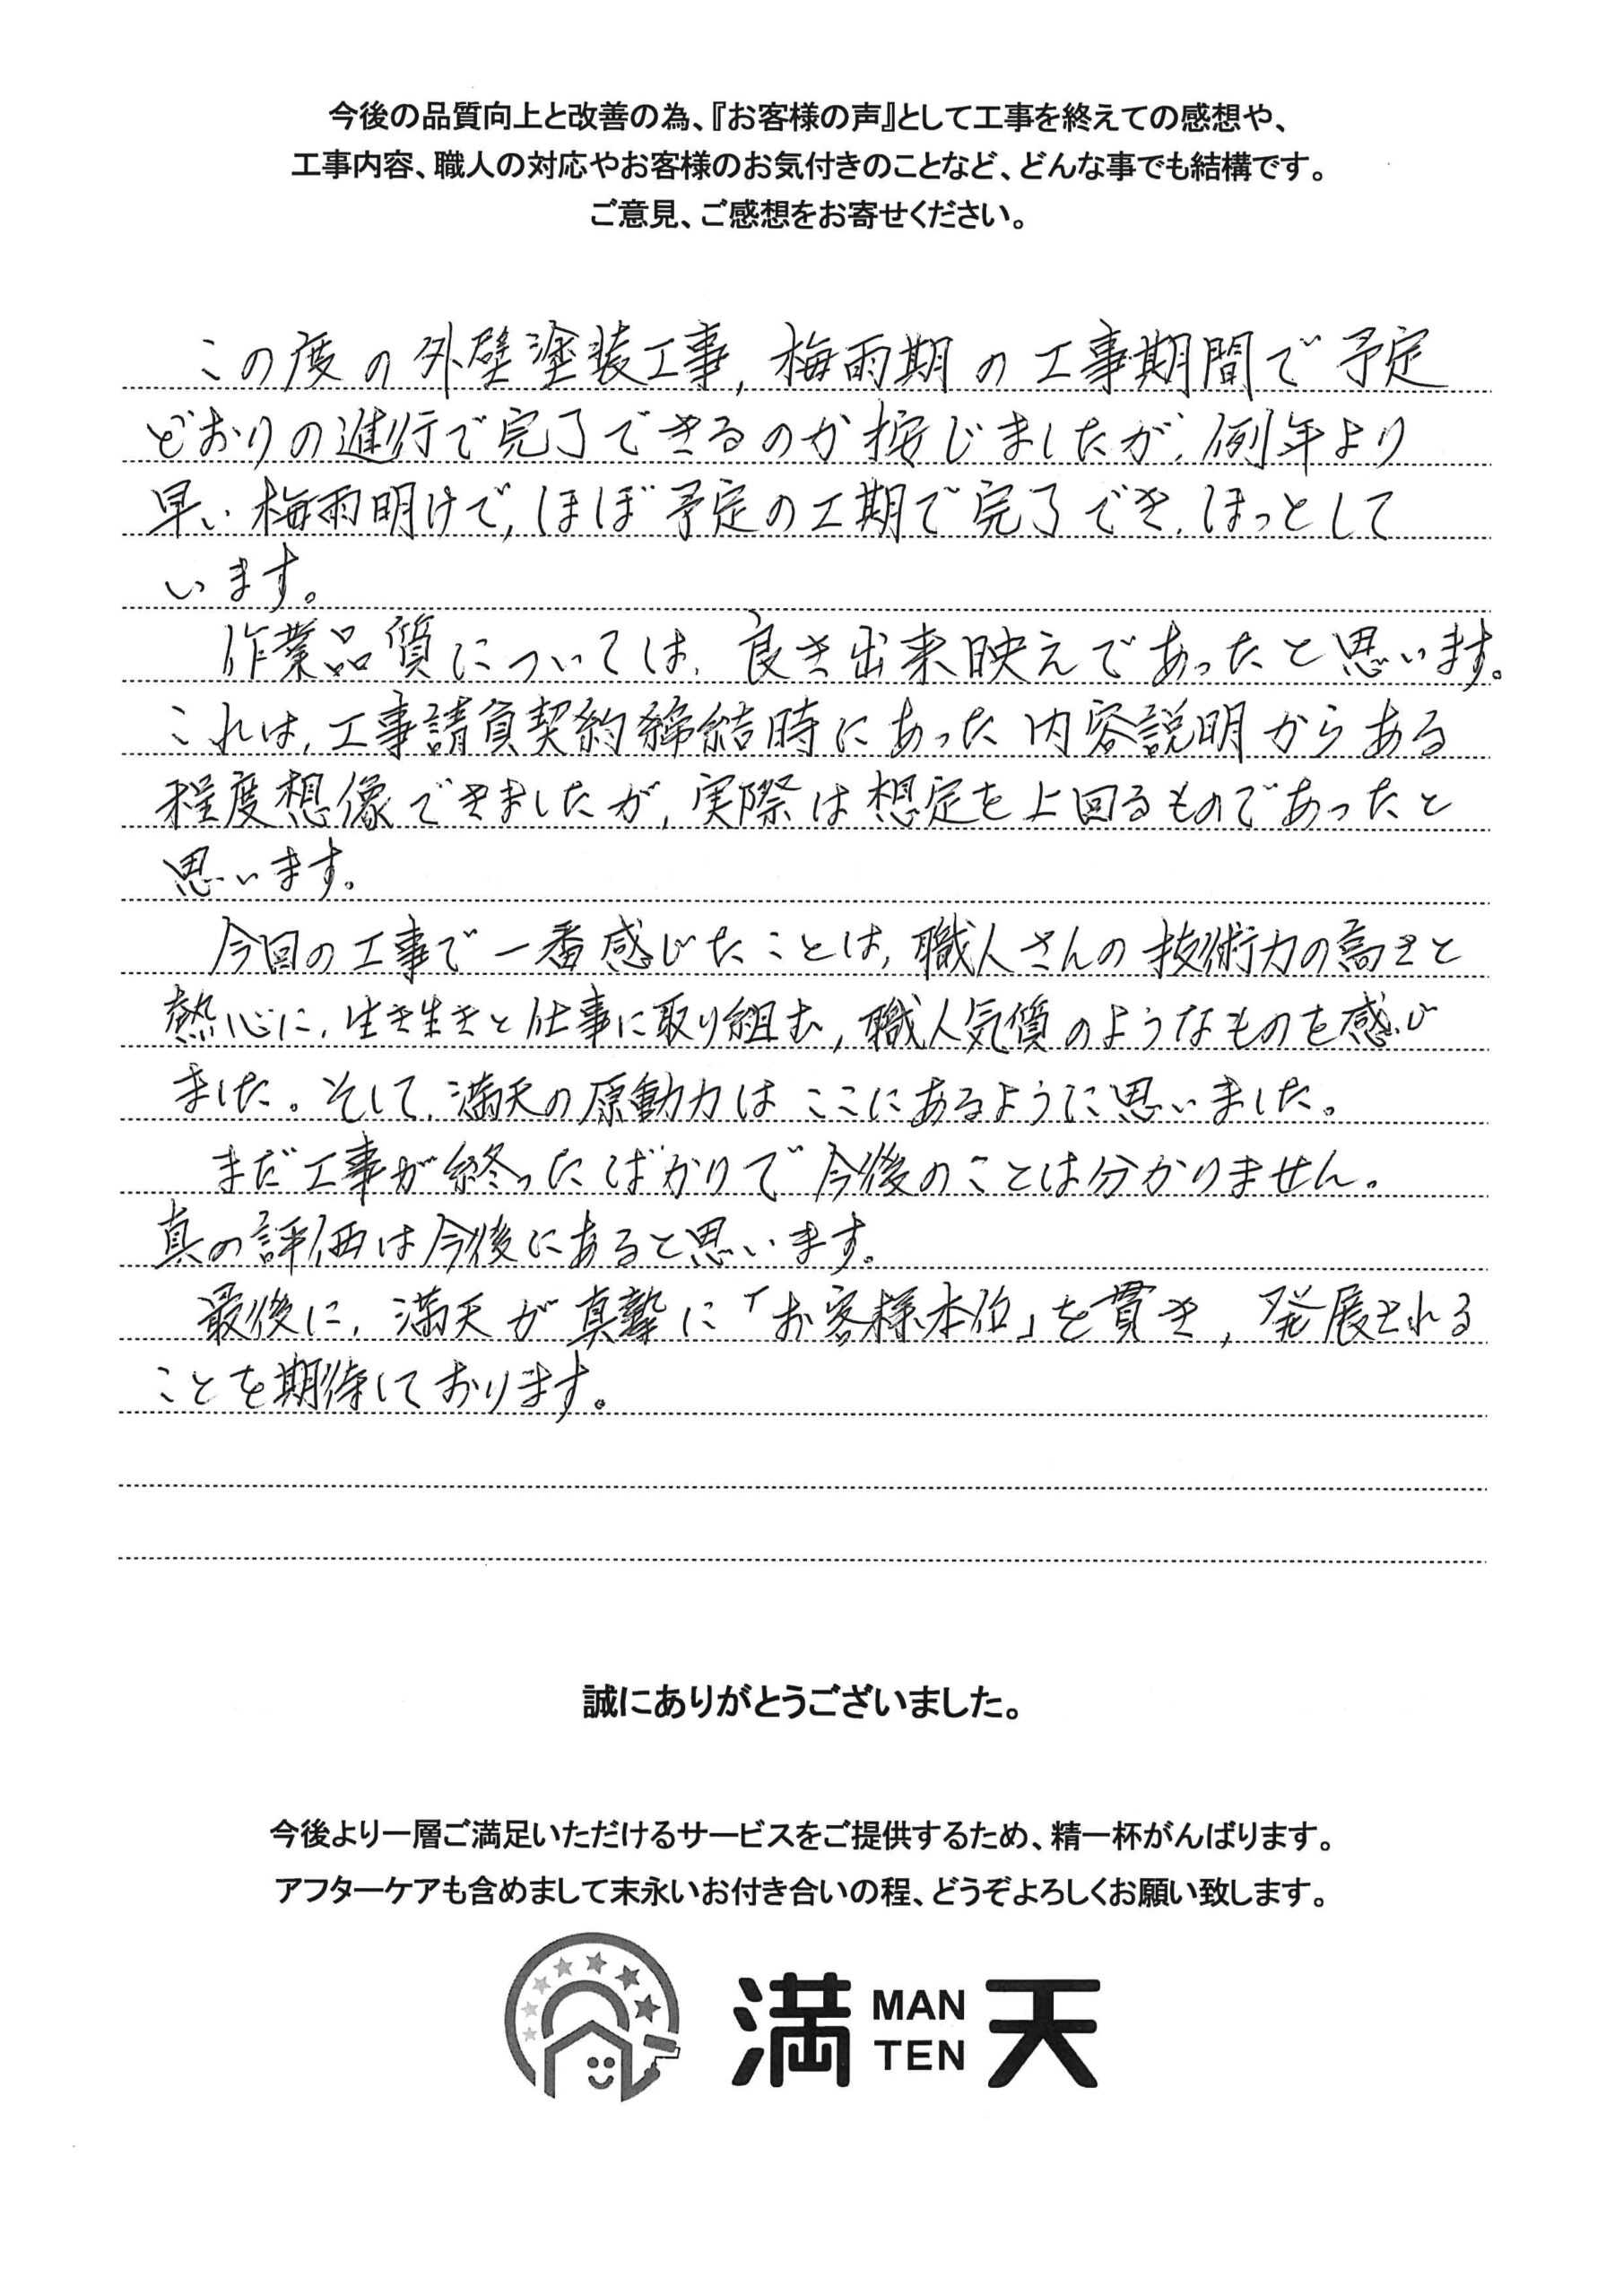 今後の品質向上と改善の為、『お客様の声』として工事を終えての感想や、
工事内容、職人の対応やお客様のお気付きのことなど、どんな事でも結構です。
ご意見、ご感想をお寄せください。
この度の外壁塗装工事, 梅雨期の工事期間で予定
どおりの進行で完了できるのか按じましたが, 例年より
早い梅雨明けで, ほぼ予定の工期で完了でき, ほっとして
います。
作業品質については, 良き出来映えであったと思います。
これは, 工事請負契約締結時にあった内容説明からある
程度想像できましたが, 実際は想定を上回るものであったと
思います。
今回の工事で一番感じたことは, 職人さんの技術力の高さと
熱心に, 生き生きと仕事に取り組む, 職人気質のようなものを感じ
ました。そして, 満天の原動力はここにあるように思いました。
まだ工事が終ったばかりで今後のことは分かりません。
真の評価は今後にあると思います。
最後に, 満天が真摯に「お客様本位」を貫き, 発展される
ことを期待しております。
誠にありがとうございました。
今後より一層ご満足いただけるサービスをご提供するため、精一杯がんばります。
アフターケアも含めまして末永いお付き合いの程、どうぞよろしくお願い致します。
満 MAN TEN 天